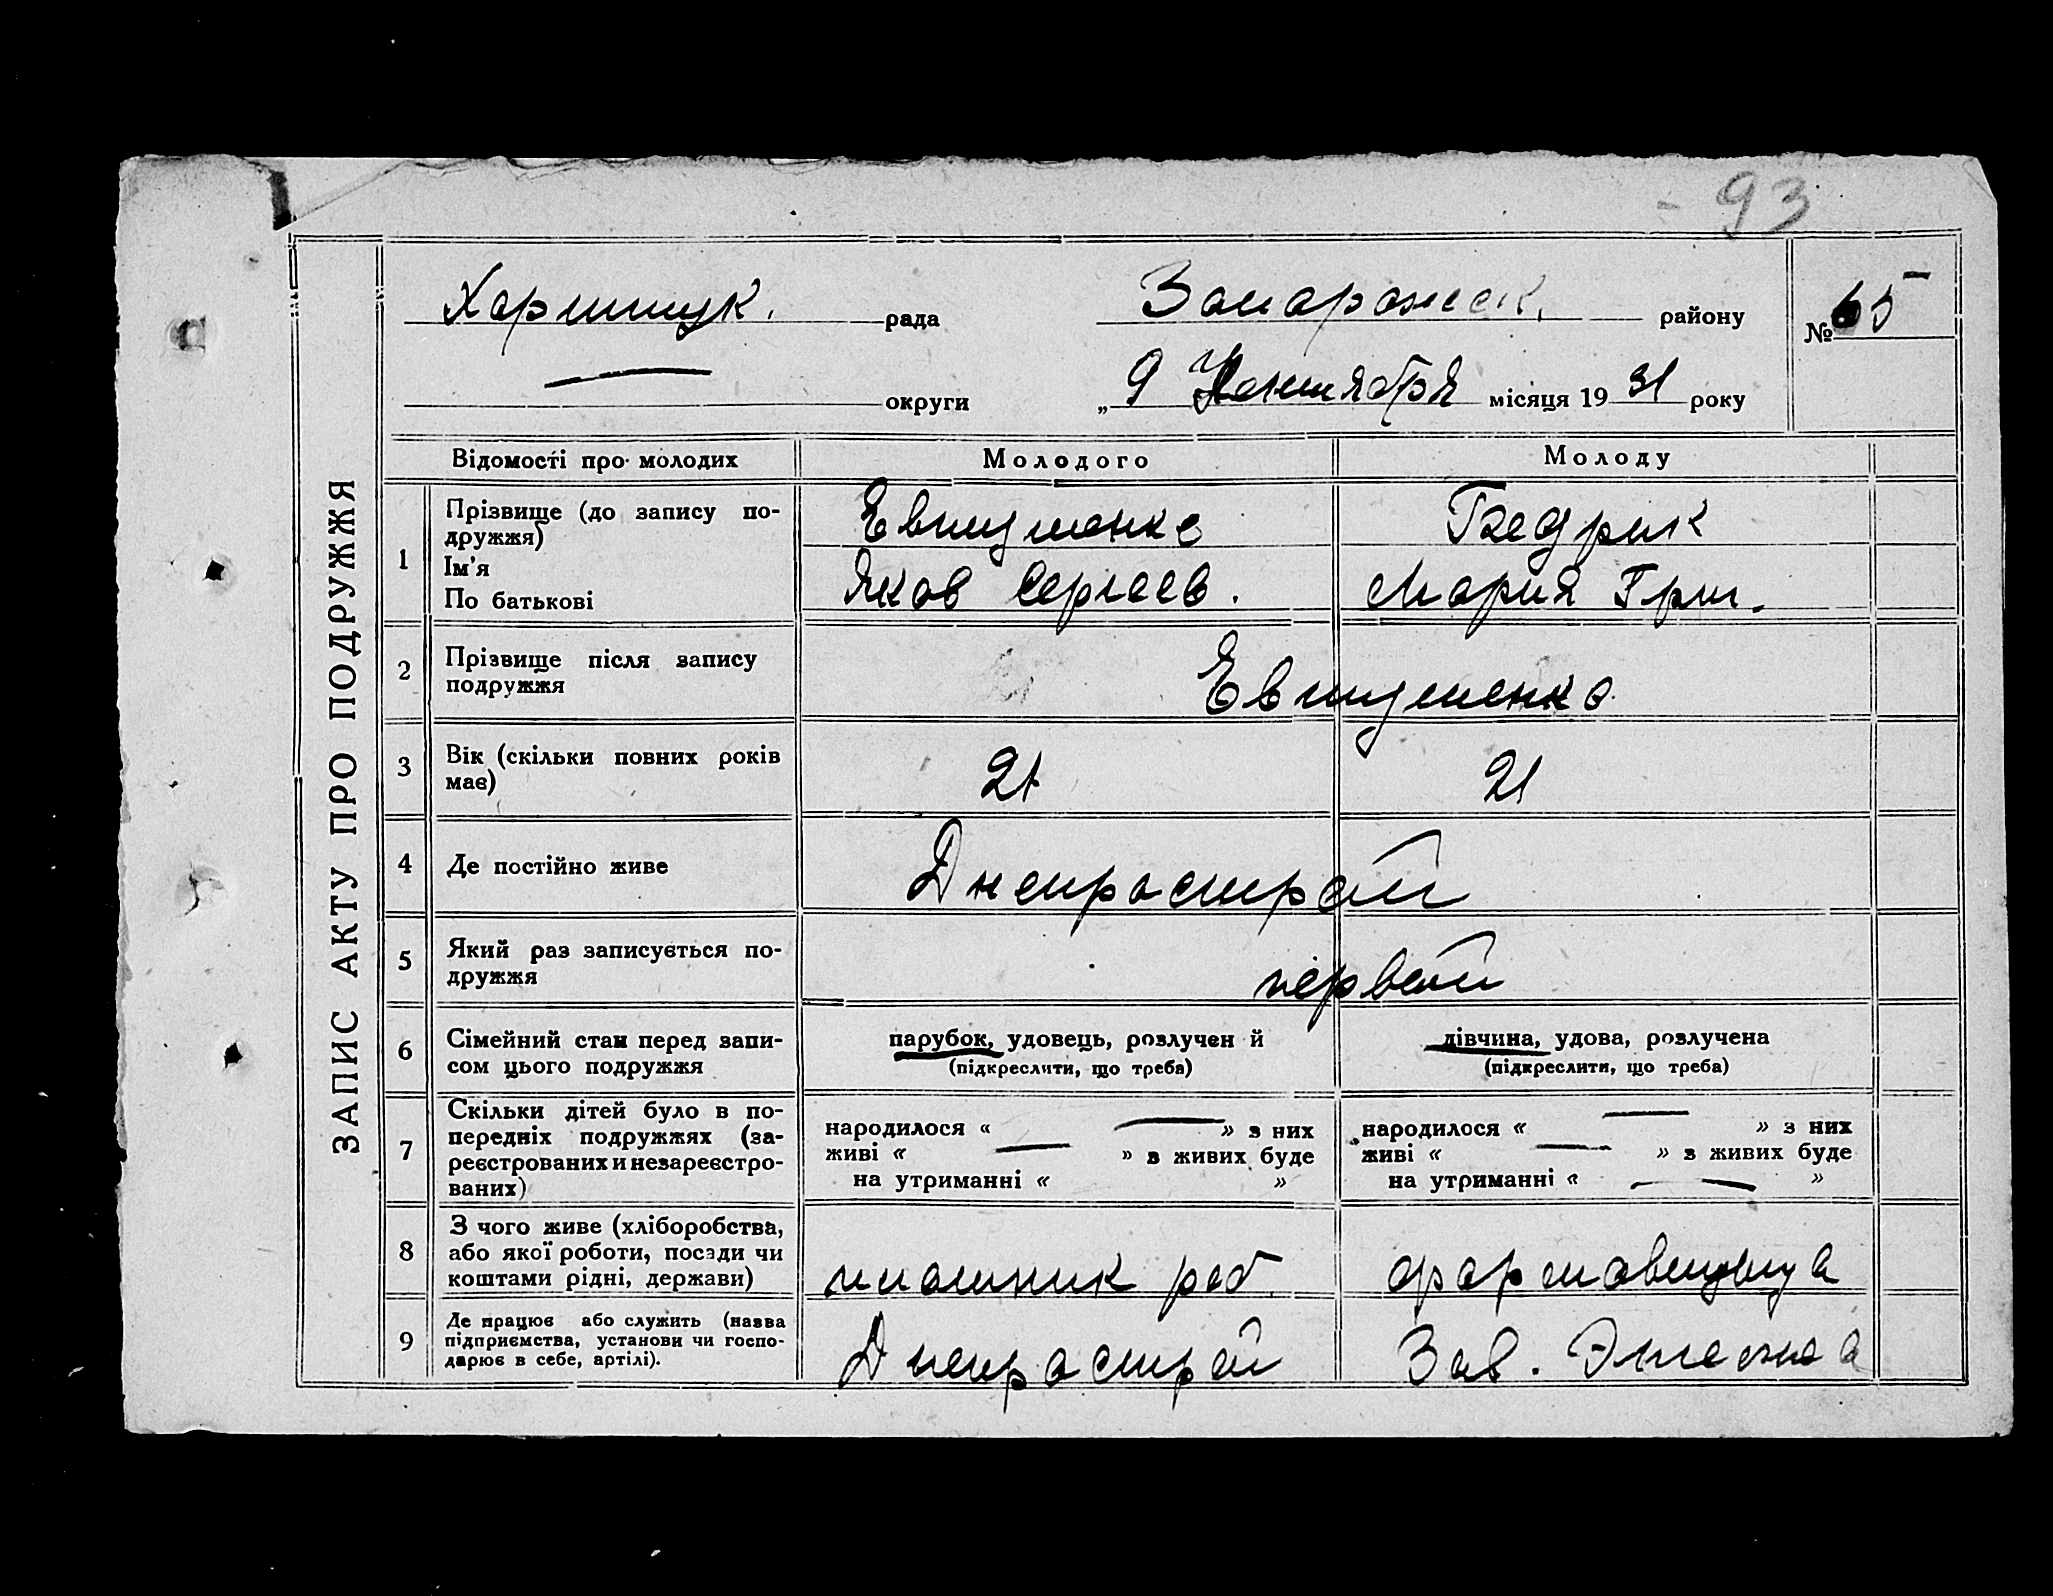 - 93
ЗАПИС АКТУ ПРО ПОДРУЖЖЯ
рада
Запорожск. району
№ 65
округи
„ 9 місяця 19 31 року
Відомості про молодих
Молодого
Молоду
1
Прізвище (до запису по-
дружжя)
Ім'я
По батькові
Евтушенко
Яков Сергеев.
Бедрик
Мария Григ.
2
Прізвище після запису
подружжя
Евтушенко
3
Вік (скільки повних років
має)
21
21
4
Де постійно живе
Днепрострой
5
Який раз записується по-
дружжя
первой
6
Сімейний стан перед запи-
сом цього подружжя
парубок, удовець, розлучен й
(підкреслити, що треба)
дівчина, удова, розлучена
(підкреслити, що треба)
7
Скільки дітей було в по-
передніх подружжях (за-
реєстрованих и незареєстро-
ваних)
народилося « — » з них
живі « — » з живих буде
на утриманні « »
народилося « — » з них
живі « — » з живих буде
на утриманні « — »
8
З чого живе (хліборобства,
або якої роботи, посади чи
коштами рідні, держави)
плотник раб.
формовщица
9
Де працює або служить (назва
підприємства, установи чи госпо-
дарює в себе, артілі).
Днепрострой
Зав.